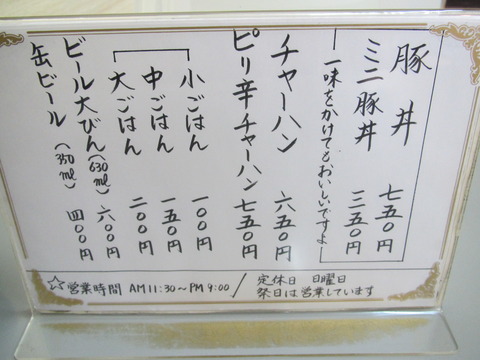 豚丼 七五〇円
ミニ豚丼 三五〇円
一味をかけてもおいしいですよ
チャーハン 六五〇円
ピリ辛チャーハン 七五〇円
小ごはん 一〇〇円
中ごはん 一五〇円
大ごはん 二〇〇円
ビール大びん(630ml) 六〇〇円
缶ビール(350ml) 四〇〇円
☆営業時間 AM11:30~PM9:00/
定休日 日曜日
祭日は営業しています